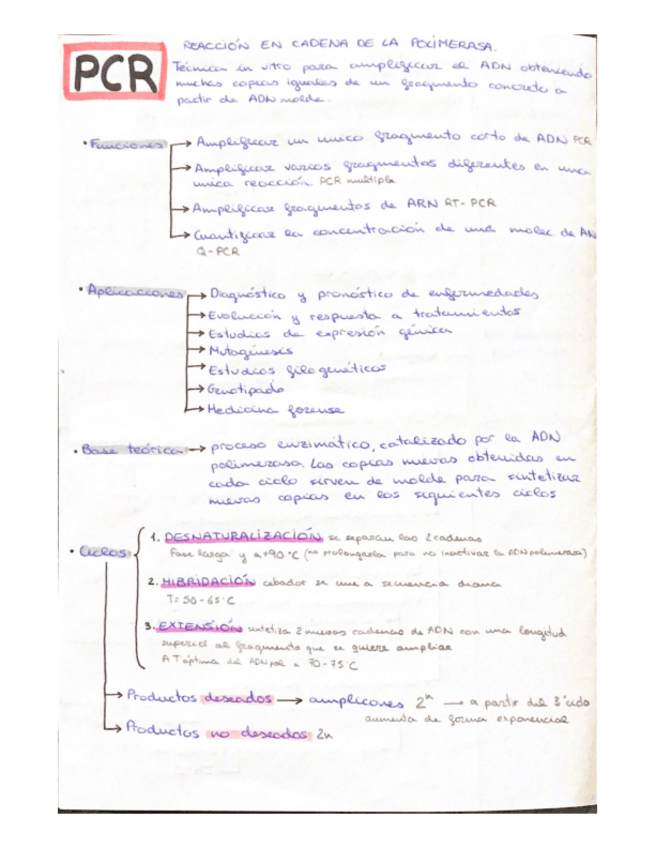 REACCIÓN EN CADENA DE LA POLIMERASA.
PCR
Técnica in vitro para amplificar el ADN obteniendo
muchas copias iguales de un fragmento concreto a
partir de ADN molde.
• Funciones → Amplificar un unico fragmento corto de ADN PCR
→ Amplificar varios fragmentos diferentes en una
unica reacción PCR multiple
→ Amplificar fragmentos de ARN RT-PCR
→ Cuantificar la concentración de una molec de AN
Q-PCR
• Aplicaciones → Diagnóstico y pronóstico de enfermedades
→ Evolución y respuesta a tratamientos
→ Estudios de expresión génica
→ Mutagénesis
→ Estudios filogenéticos
→ Genotipado
→ Medicina forense
• Base teórica → proceso enzimático, catalizado por la ADN
polimerasa. Las copias nuevas obtenidas en
cada ciclo sirven de molde para sintetizar
nuevas copias en los siguientes ciclos
• Ciclos
1. DESNATURALIZACIÓN se separan las 2 cadenas
Fase larga y a +90°C (no prolongarla para no inactivar la ADN polimerasa)
2. HIBRIDACIÓN cebador se une a secuencia diana
T= 50-65°C
3. EXTENSIÓN sintetiza 2 nuevas cadenas de ADN con una longitud
superior al fragmento que se quiere ampliar
A T óptima del ADN pol a 70-75°C
→ Productos deseados → amplicones 2ⁿ → a partir del 3° ciclo
aumenta de forma exponencial
→ Productos no deseados 2n